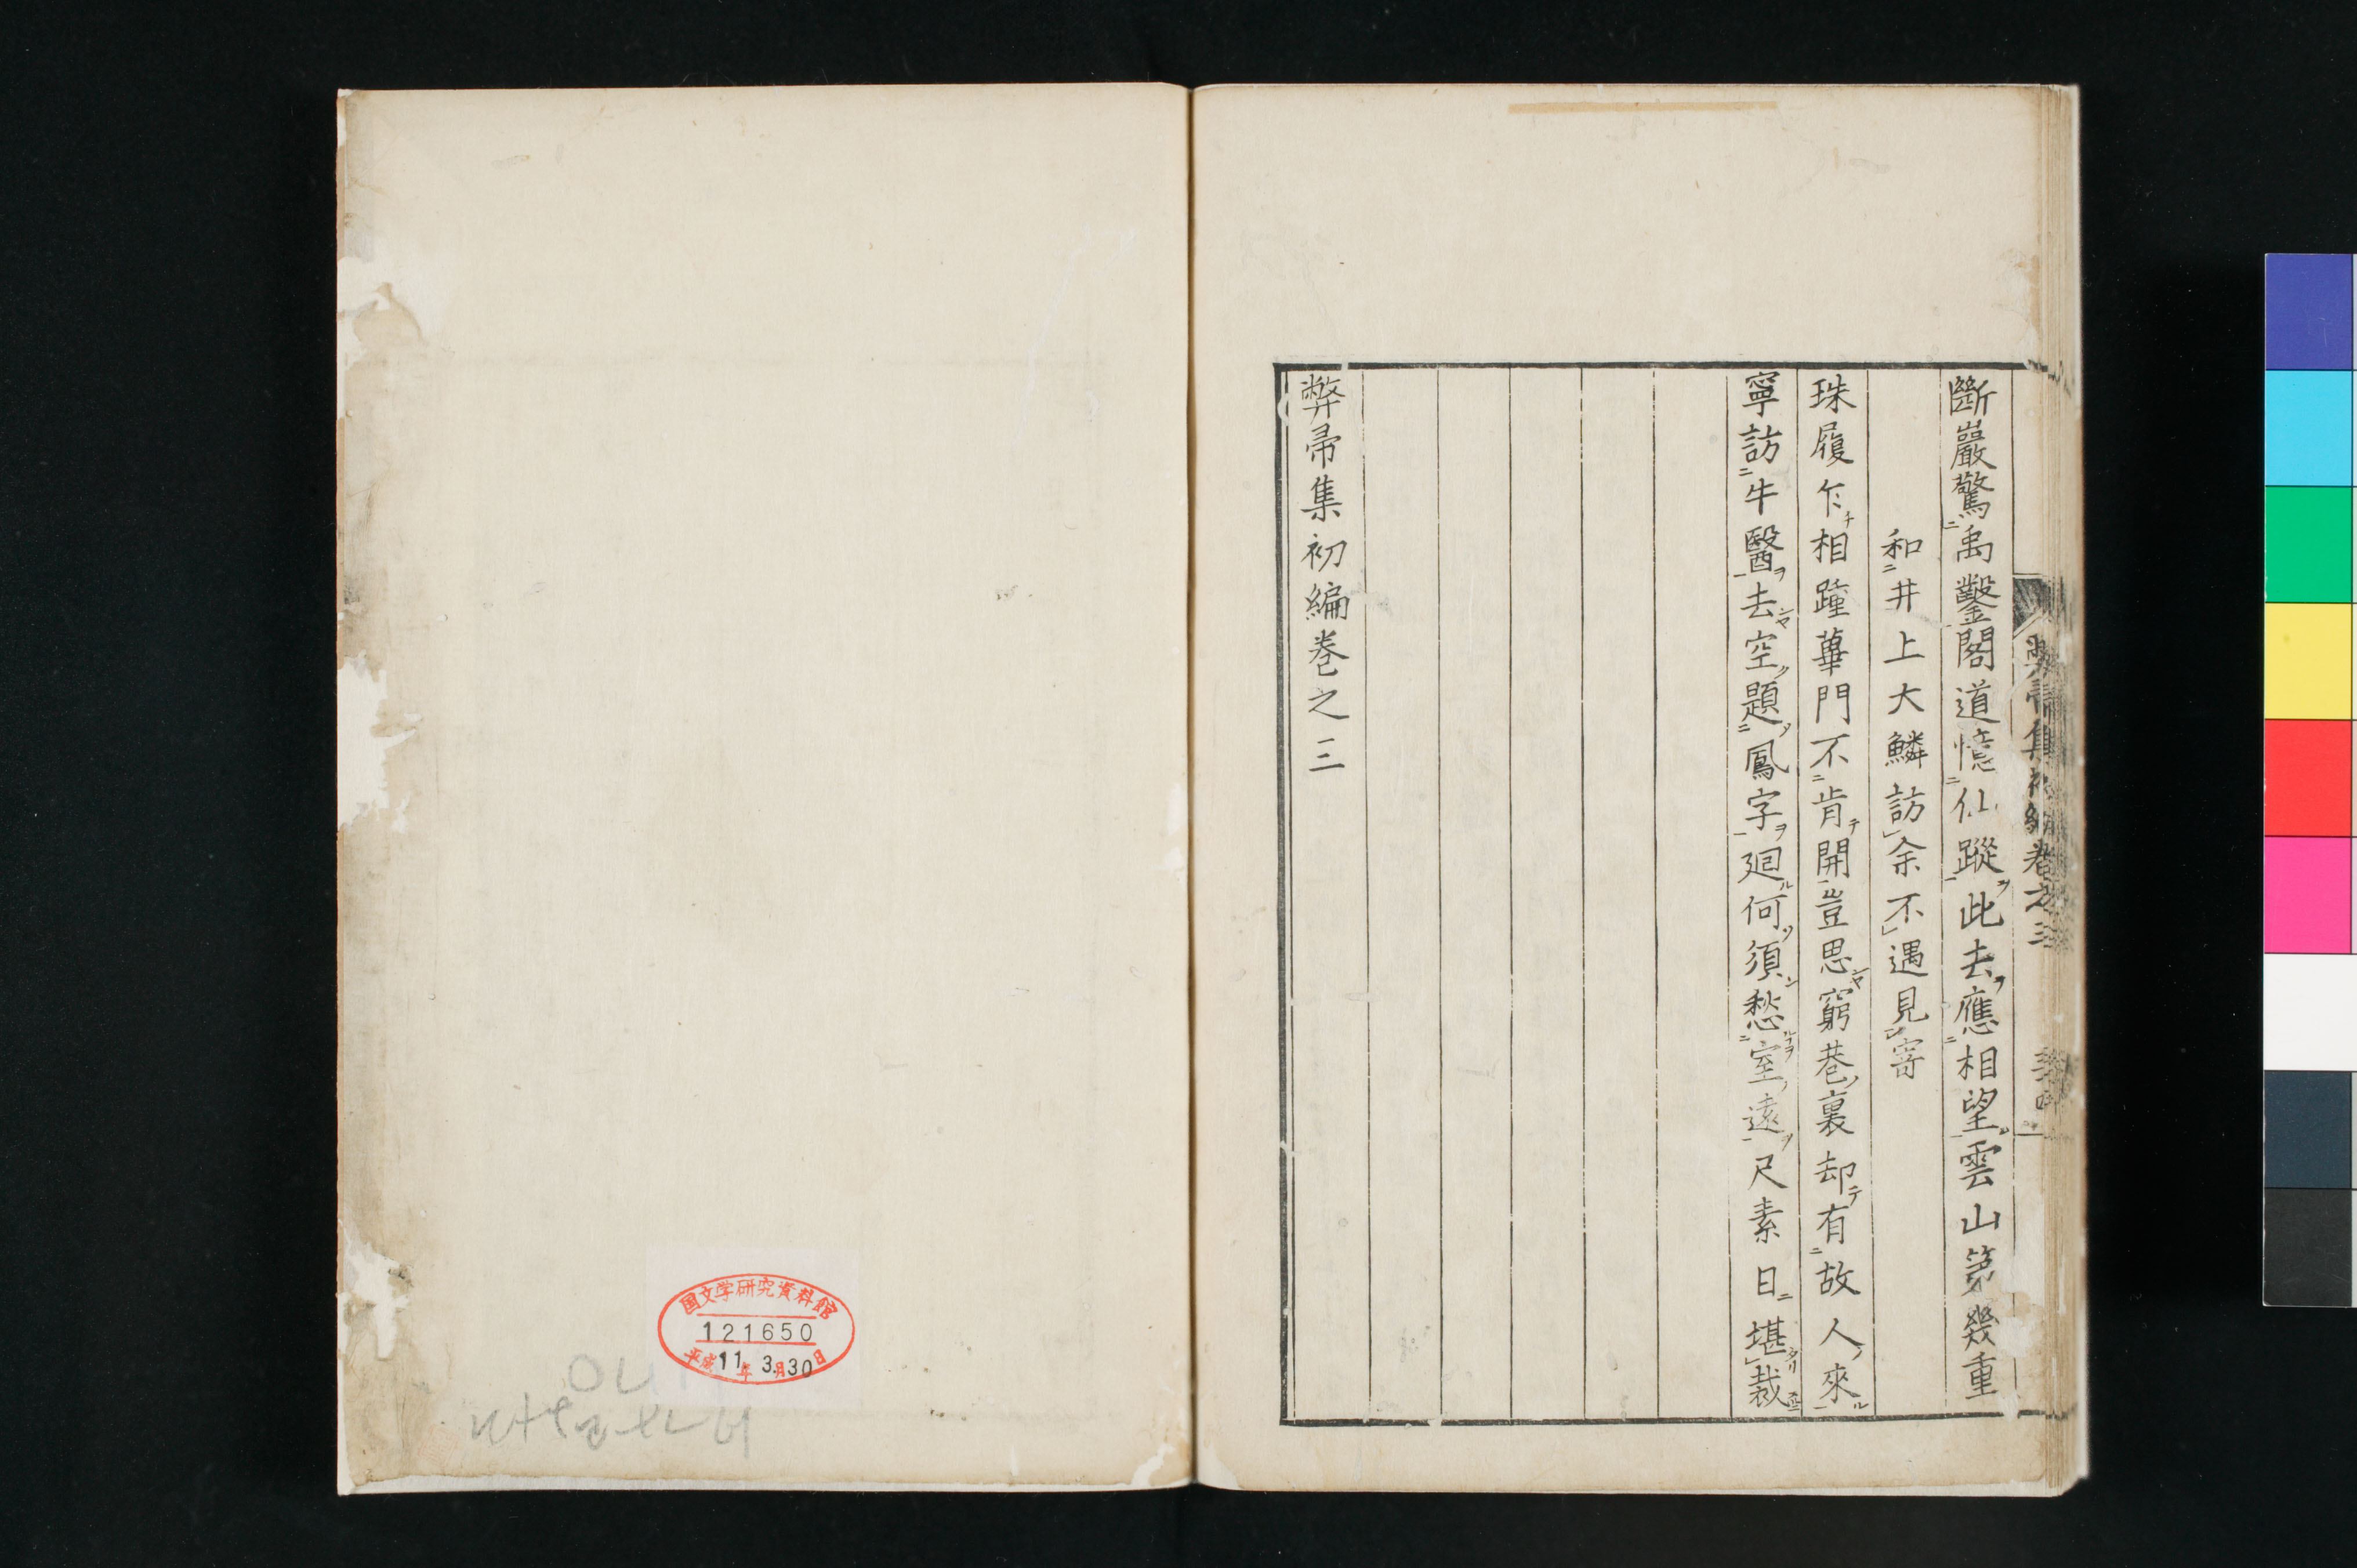 斷巖驚禹鑿閣道憶仙蹤此去應相望雲山第幾重
和井上大鱗訪余不遇見寄
珠履乍相踵蓽門不肯開豈思窮巷裏却有故人來
寧訪牛醫去空題鳳字廻何須愁室遠尺素日堪裁
弊帚集初編巻之三
弊帚集初編巻之三
国文学研究資料館
121650
平成11年3月30日